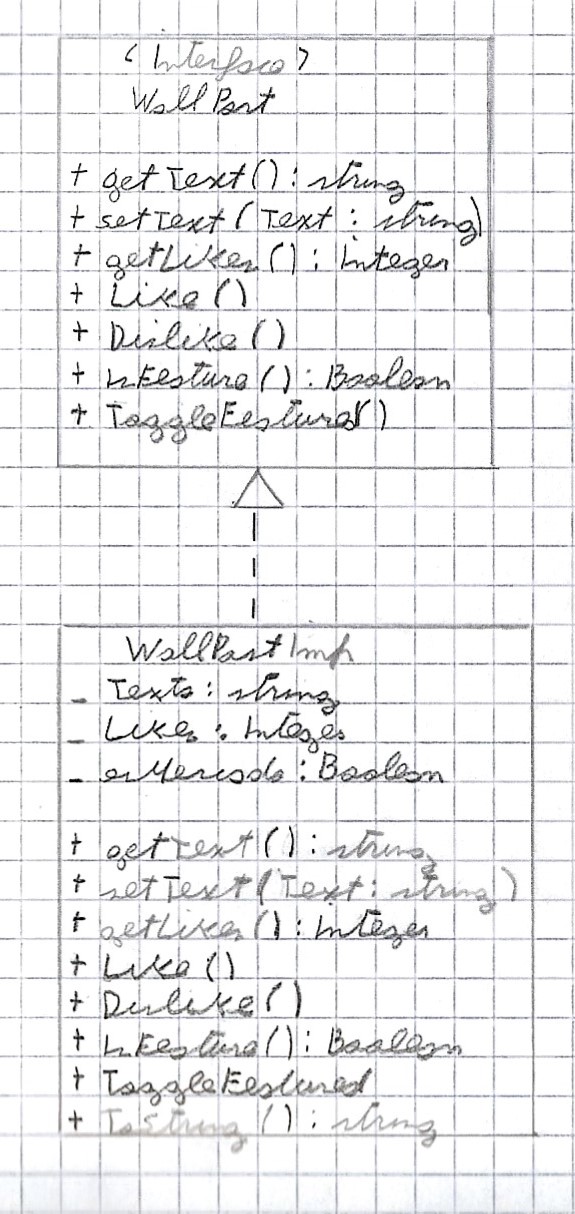 < Interface >
WallPost
+ getText() : string
+ setText(Text : string)
+ getLikes() : Integer
+ Like()
+ Dislike()
+ isFeature() : Boolean
+ ToggleFeatured()
WallPostImp
- Texto : string
- Likes : Integer
- esMarcado : Boolean
+ getText() : string
+ setText(Text : string)
+ getLikes() : Integer
+ Like()
+ Dislike()
+ isFeature() : Boolean
+ ToggleFeatured
+ ToString() : string